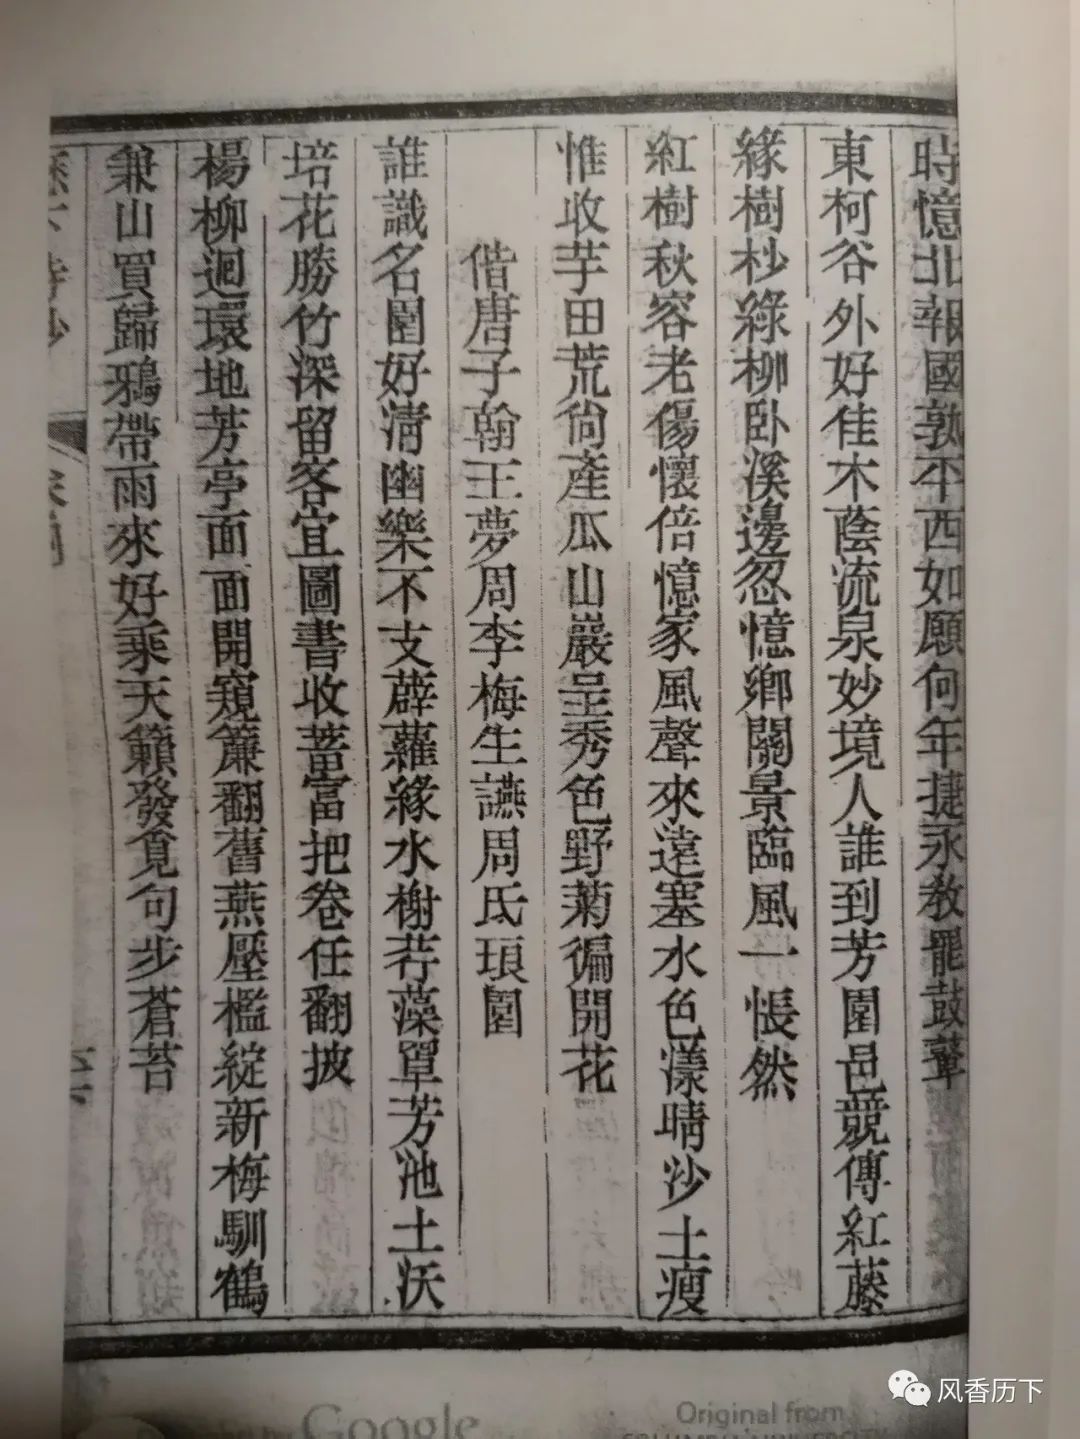 時憶北報國敦平西如願何年捷永教罷鼓鼙
東柯谷外好佳木蔭流泉妙境人誰到芳園邑競傳紅藤
緣樹杪綠柳卧溪邊忽憶鄉關景臨風一悵然
紅樹秋容老傷懷倍憶家風聲來遠塞水色漾晴沙土瘦
惟收芋田荒尙產瓜山巖呈秀色野菊徧開花
偕唐子翰王夢周李梅生讌周氏琅園
誰識名園好淸幽樂不支薜蘿緣水榭荇藻罩芳池土沃
培花勝竹深留客宜圖書收蓄富把卷任翻披
楊柳迴環地芳亭面面開窺簾翻舊燕壓檻綻新梅馴鶴
兼山買歸鴉帶雨來好乘天籟發覓句步蒼苔
Google
Original from
风香历下